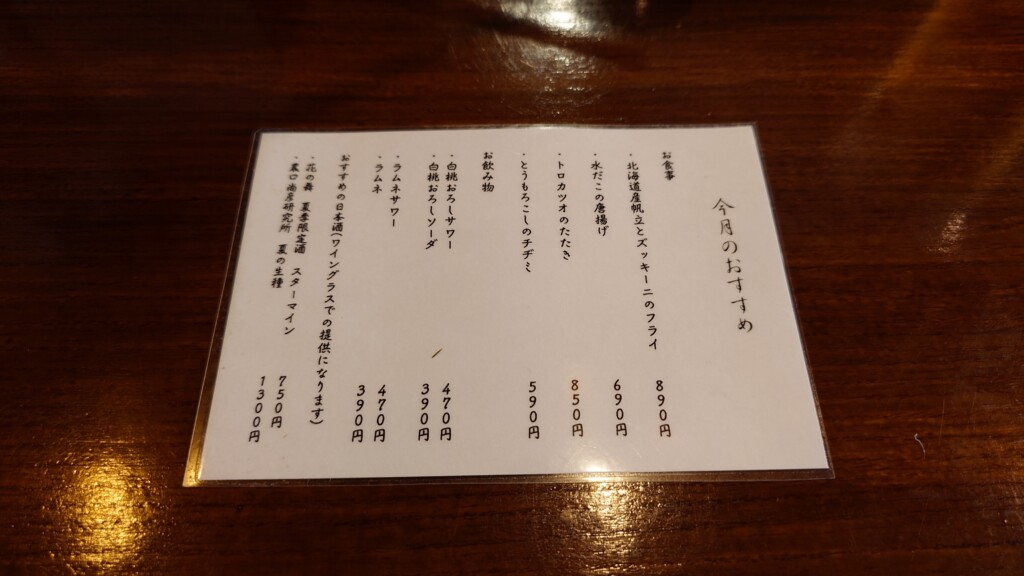 今月のおすすめ
お食事
・北海道産帆立とズッキーニのフライ 890円
・水だこの唐揚げ 690円
・トロカツオのたたき 850円
・とうもろこしのチヂミ 590円
お飲み物
・白桃おろしサワー 470円
・白桃おろしソーダ 390円
・ラムネサワー 470円
・ラムネ 390円
おすすめの日本酒(ワイングラスでの提供になります)
・花の舞 夏季限定酒 スターマイン 750円
・農口尚彦研究所 夏の生種 1300円